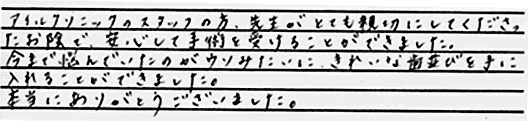 アイルクリニックのスタッフの方、先生がとても親切にしてくださっ
たお陰で、安心して手術を受けることができました。
今まで悩んでいたのがウソみたいに、きれいな歯並びを手に
入れることができました。
本当にありがとうございました。